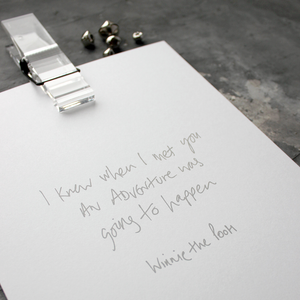 I knew when I met you
AN ADVENTURE was
going to happen
Winnie the Pooh